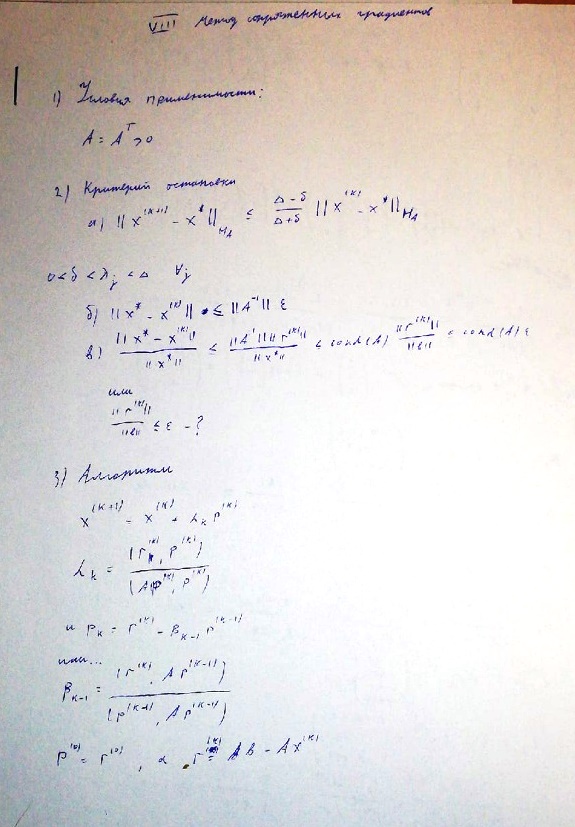 VIII Метод сопряженных градиентов
1) Условия применимости:
A = A^T > 0
2) Критерий остановки
а) ||x^(k+1) - x*||_{H_A} ≤ (Δ-δ)/(Δ+δ) ||x^(k) - x*||_{H_A}
0 < δ < λ_j < Δ ∀j
б) ||x* - x^(k)|| ≤ ||A^-1|| ε
в) ||x* - x^(k)|| / ||x*|| ≤ ||A^-1|| ||r^(k)|| / ||x*|| ≤ cond(A) ||r^(k)|| / ||b|| ≤ cond(A) ε
или
||r^(k)|| / ||b|| ≤ ε - ?
3) Алгоритм
x^(k+1) = x^(k) + α_k p^(k)
α_k = (r^(k), p^(k)) / (Ap^(k), p^(k))
и p_k = r^(k) - β_{k-1} p^(k-1)
или...
β_{k-1} = (r^(k), Ap^(k-1)) / (p^(k-1), Ap^(k-1))
p^(0) = r^(0), а r^(k) = b - Ax^(k)